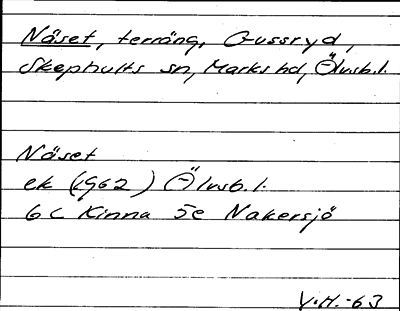 Näset, terräng, Gussryd,
Skephults sn, Marks hd, Älvsb.l.
Näset
ek (1962) Älvsb.l.
6C Kinna 5e Nakersjö
V.H.-63